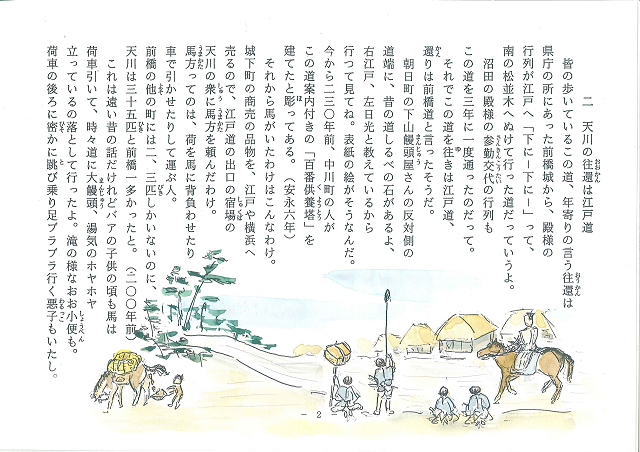 二　天川の往還は江戸道
皆の歩いているこの道、年寄りの言う往還は
県庁の所にあった前橋城から、殿様の
行列が江戸へ「下にー下にー」って、
南の松並木へぬけて行った道だっていうよ。
沼田の殿様の参勤交代の行列も
この道を三年に一度通ったのだって。
それでこの道を往きは江戸道、
還りは前橋道と言ったそうだ。
朝日町の下山饅頭屋さんの反対側の
道端に、昔の道しるべの石があるよ、
右江戸、左日光と教えているから
行って見てね。表紙の絵がそうなんだ。
今から二三〇年前、中川町の人が
この道案内付きの「百番供養塔」を
建てたと彫ってある。（安永六年）
それから馬がいたわけはこんなわけ。
城下町の商売の品物を、江戸や横浜へ
売るので、江戸道の出口の宿場の
天川の衆に馬方を頼んだわけ。
馬方ってのは、荷を馬に背負わせたり
車で引かせたりして運ぶ人。
前橋の他の町には二、三匹しかいないのに、
天川は三十五匹と前橋一多かったと。（二〇〇年前）
これは遠い昔の話だけれどバアの子供の頃も馬は
荷車引いて、時々道に大饅頭、湯気のホヤホヤ
立っているの落として行ったよ。滝の様なおお小便も。
荷車の後ろに密かに跳び乗り足ブラブラ行く悪子もいたし。
- 2 -